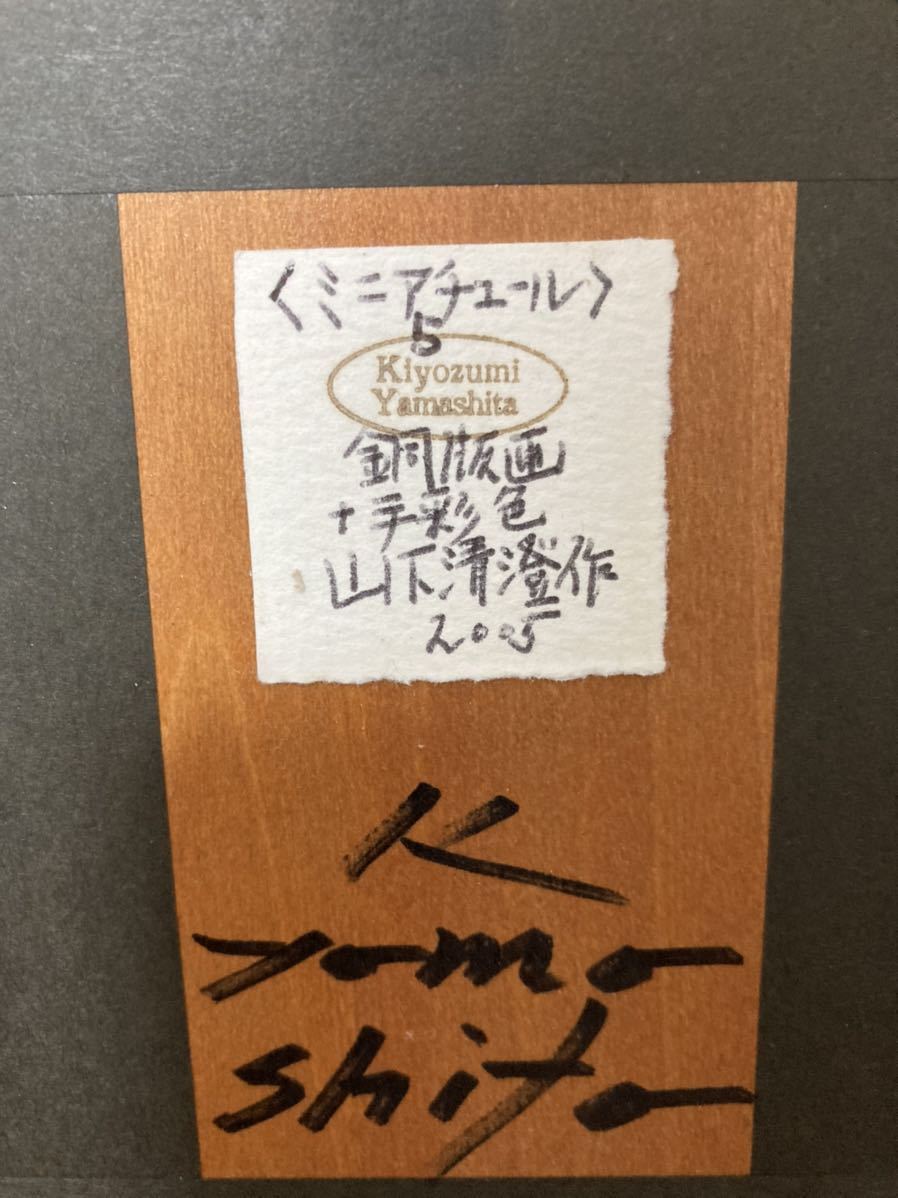 〈ミニアチュール〉
5
Kiyozumi
Yamashita
銅版画
+手彩色
山下清澄作
2005
K
yama
shita